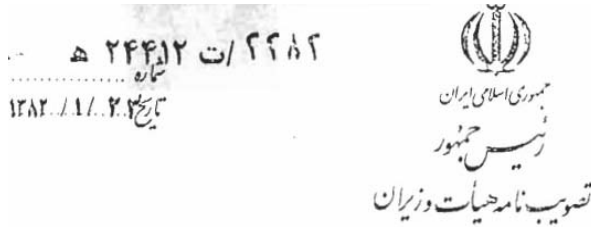 جمهوری اسلامی ایران
رئیس جمهور
تصویب نامه هیأت وزیران
۲۲۸۲ /ت ۲۴۴۱۲ ه
شماره
تاریخ ۱۳۸۲/۱/